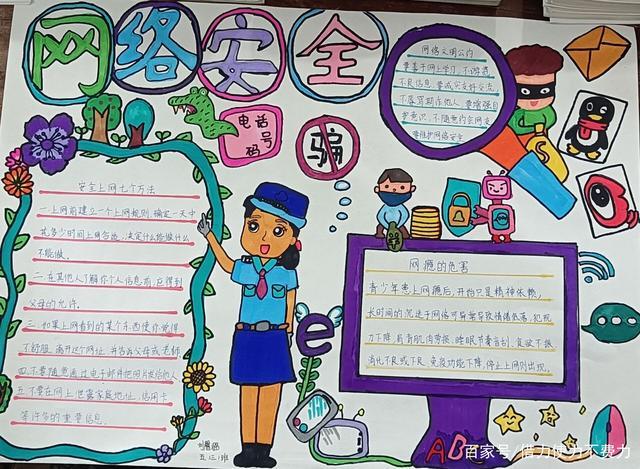 网络安全
电话
号
码
骗
网络文明公约
要善于网上学习 不浏览
不良信息 要诚实友好交流
不辱骂欺诈他人 要增强自
护意识 不随意约会网友
要维护网络安全
安全上网七个方法
一.上网前建立一个上网规则,确定一天中
花多少时间上网合适,决定什么能做什么
不能做。
二.在其他人了解你个人信息前,应得到
父母的允许.
三.如果上网看到的某个东西使你觉得
不舒服.离开这个网址,并告诉父母或老师
四.不要随意通过电子邮件把照片发给他人
五.不要在网上泄露家庭地址、信用卡
等许多的重要信息.
五.三.班
网瘾的危害
青少年患上网瘾后,开始只是精神依赖,
长时间的沉迷于网络可导致情绪低落、
力下降、肩背肌肉劳损、睡眠节奏紊乱、食欲不振
消化不良或下良、免疫功能下降,停止上网则出现。
e
AB
百家号/借力使力不费力